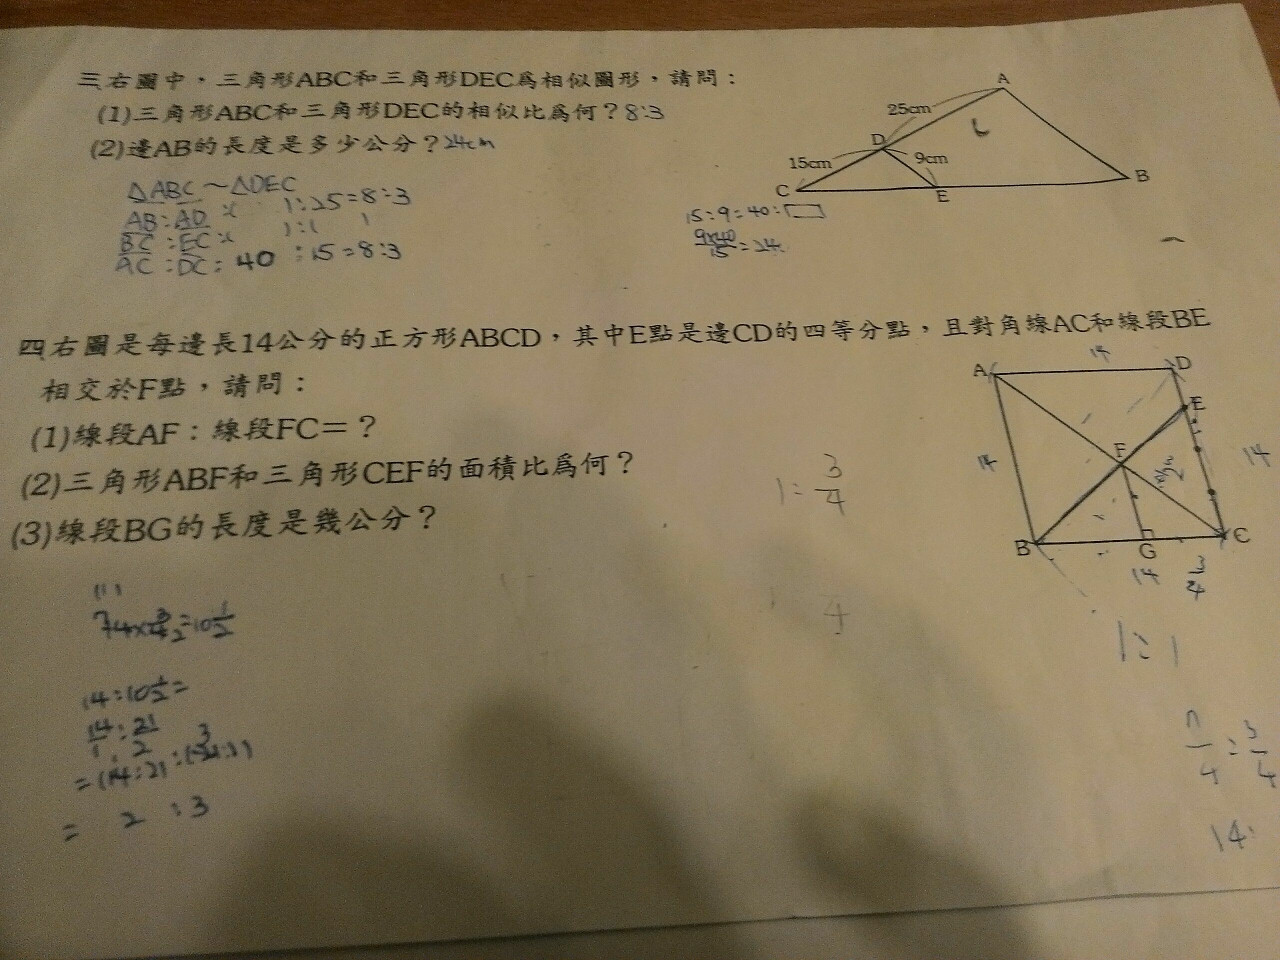 三、右圖中，三角形ABC和三角形DEC為相似圖形，請問：
(1)三角形ABC和三角形DEC的相似比為何？8:3
(2)邊AB的長度是多少公分？24cm
△ABC～△DEC
AB:AD
1:25=8:3
BC:EC
AC:DC=40:15=8:3
A
25cm
D
15cm
9cm
C
E
B
15:9=40:□
9×40
15
=24
四、右圖是每邊長14公分的正方形ABCD，其中E點是邊CD的四等分點，且對角線AC和線段BE
相交於F點，請問：
(1)線段AF：線段FC＝？
(2)三角形ABF和三角形CEF的面積比為何？
(3)線段BG的長度是幾公分？
14
A
D
E
F
14
14
B
G
C
14
3
4
1:
3
4
1:1
(1)
=10½
14:10½=
14:21
1 2
= 2 : 3
4
3
4
14: